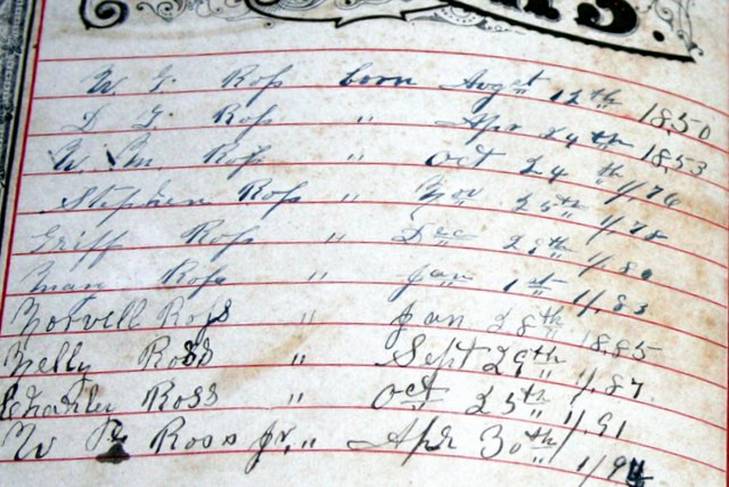 W. G. Ross born Augst 12th 1850
D G. Ross " Apr 24th 1853
W. M. Ross " Oct 24th 1/76
Stephen Ross " Nov 25th 1/78
Griff Ross " Dec 28th 1/80
Mary Ross " Jan 1st 1/83
Norvell Ross " Jan 28th 1885
Nelly Ross " Sept 29th 1/87
Charley Ross " Oct 25th 1/91
W Ross Jr. " Apr 30th 1/94